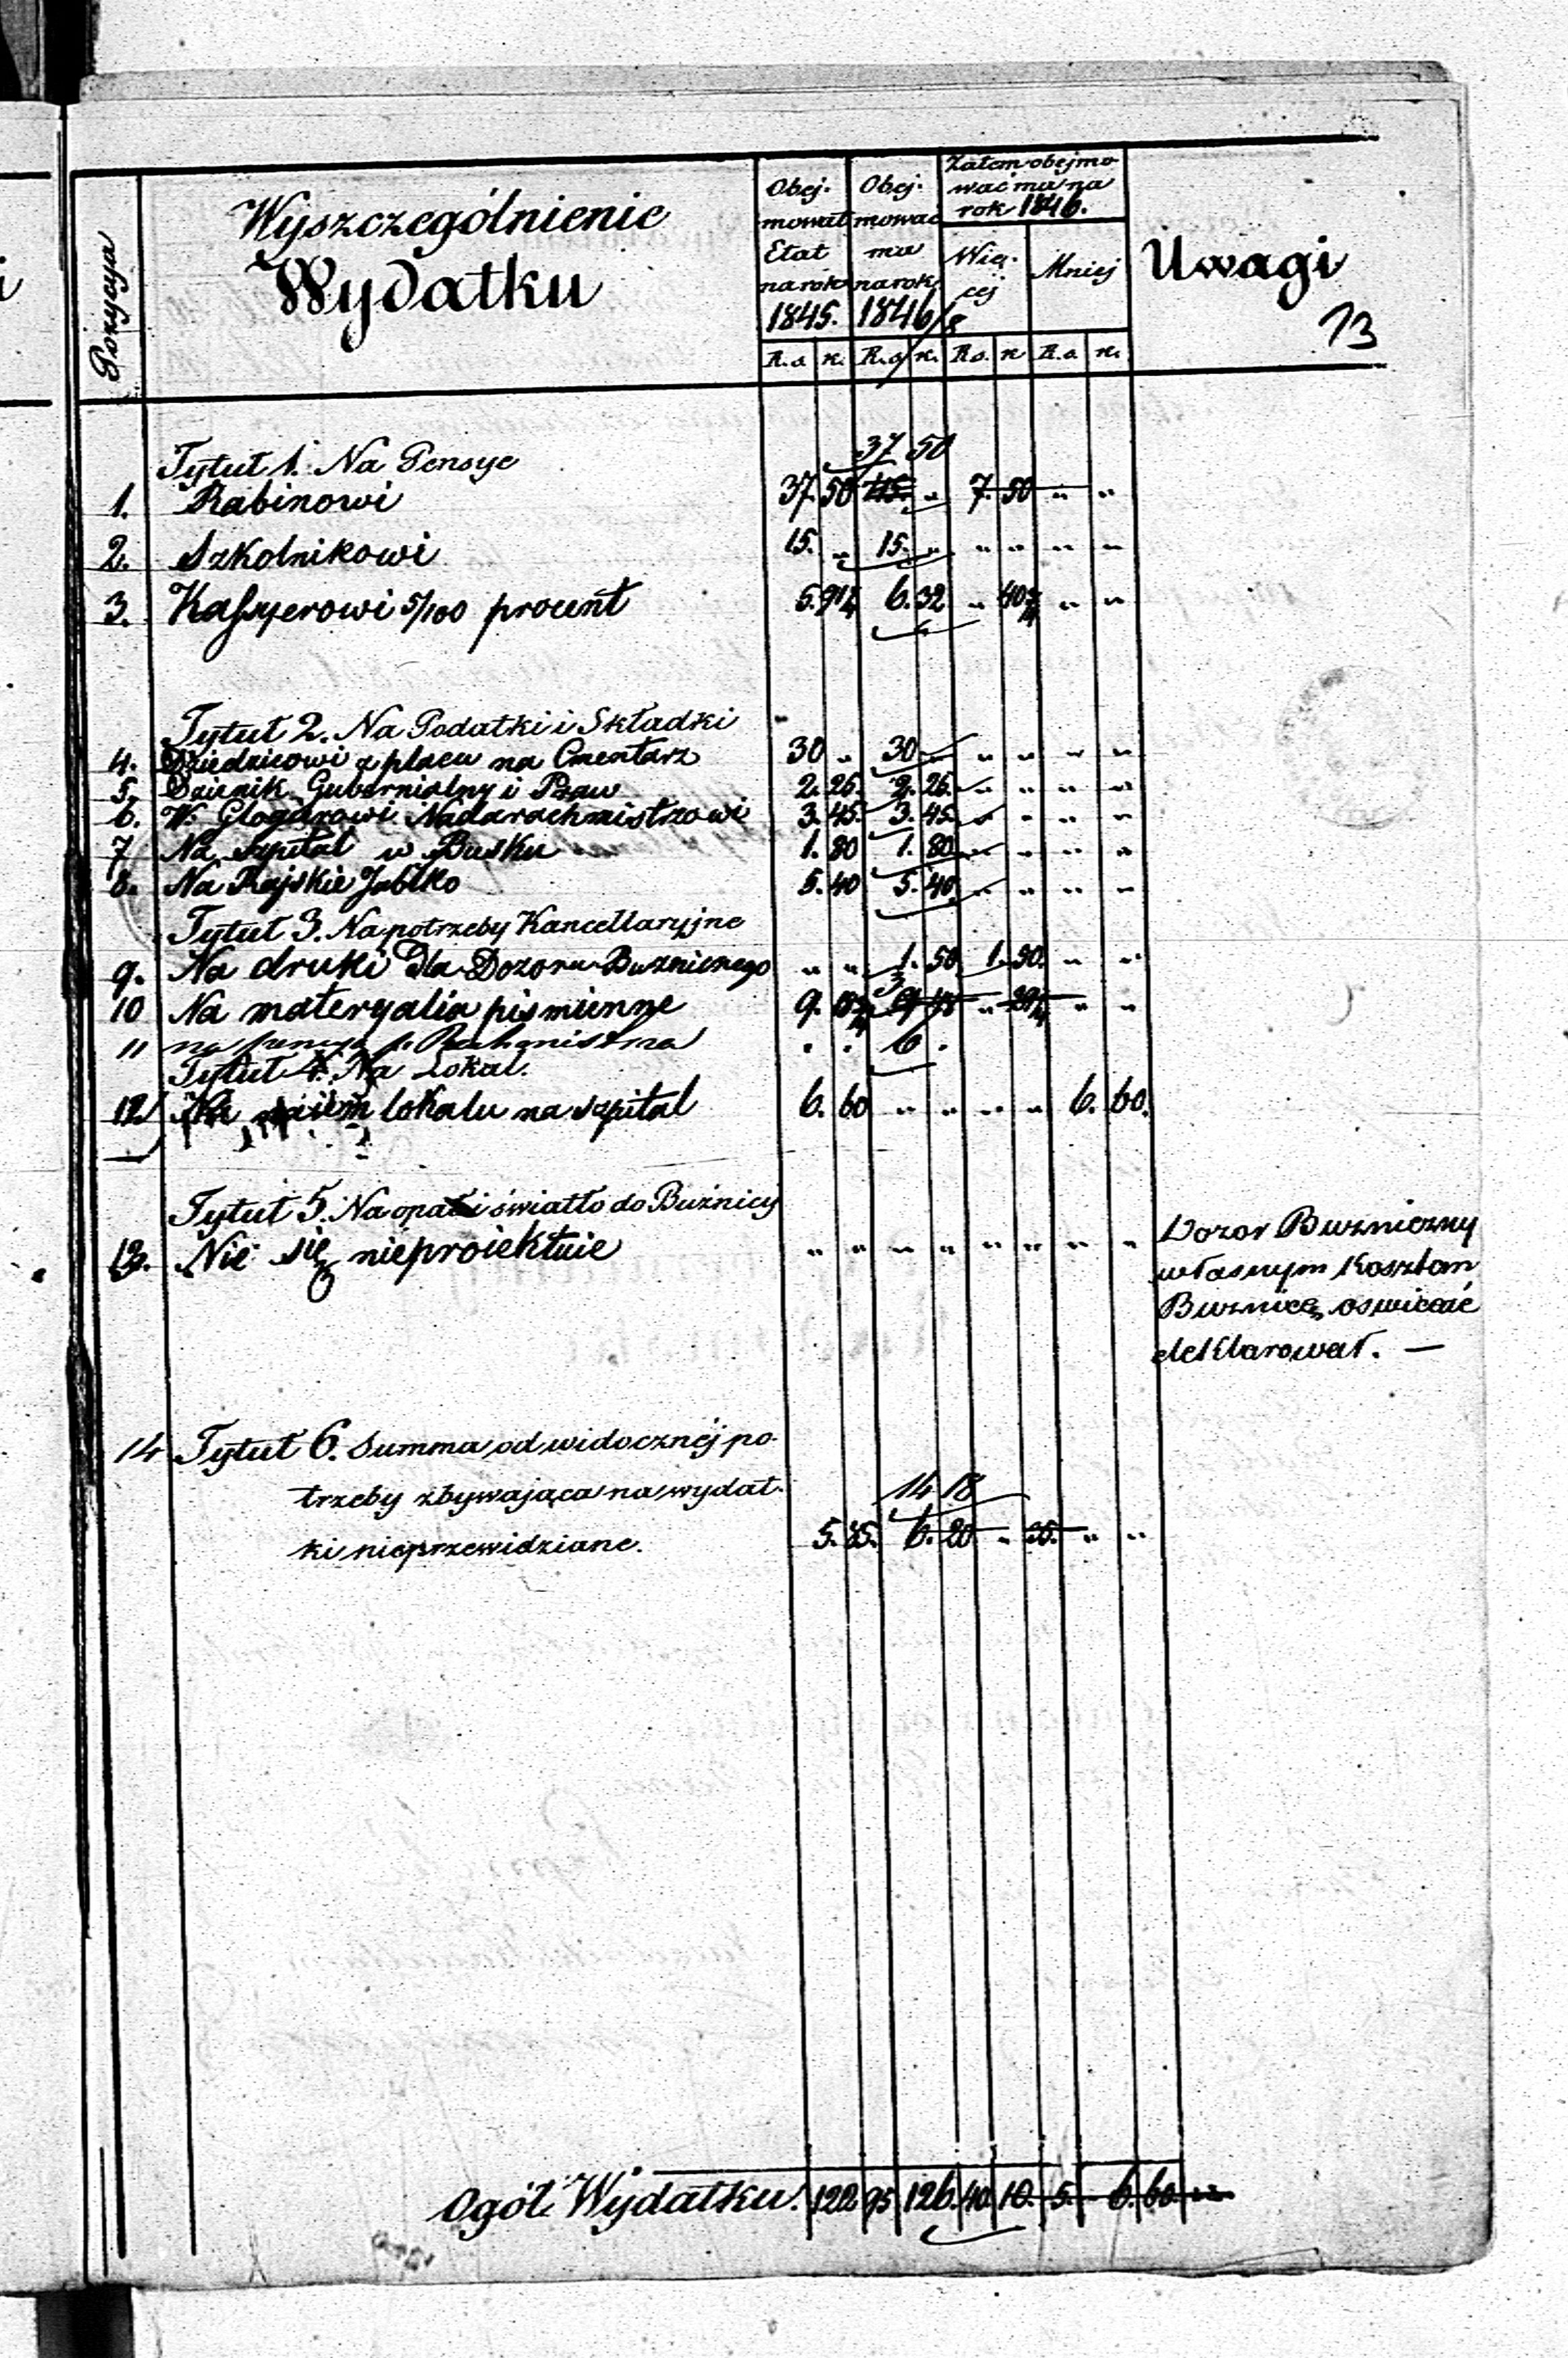 Pozycya
Wyszczególnienie
Wydatku
Obej-
mował
Etat
na rok
1845.
Obej-
mować
ma
na rok
1846/8
Zatem obejmo-
wać ma na
rok 1846.
Wię-
cej
Mniej
Uwagi
13
R.s. k. R.s. k. R.s. k R.s. k.
Tytuł 1. Na Pensye
37 50
1. Rabinowi 37. 50 45. „ 7. 50 „ „
2. Szkolnikowi 15. „ 15. „ „ „ „ „
3. Kassyerowi 5/100 procent 5. 91¼ 6. 32 „ 40¾ „ „
Tytuł 2. Na Podatki i Składki
4. Dziedzicowi z placu na Cmentarz 30 „ 30 „ „ „ „ „
5. Dziennik Gubernialny i Praw 2. 26. 2. 26. „ „ „ „
6. W. Glogerowi Nadarachmistrzowi 3. 45. 3. 45. „ „ „ „
7 Na szpital w Busku 1. 80 1. 80 „ „ „ „
8. Na Rajskie Jabłko 5. 40 5. 40 „ „ „ „
Tytuł 3. Na potrzeby Kancellaryjne
9. Na druki dla Dozoru Buzniczego „ „ 1. 50 1. 50. „ „
3
10 Na materyalia piśmienne 9. „ „ „
11 na . . 6 .
Tytuł 4. Na Lokal.
12 Na naiem lokalu na szpital 6. 60 „ „ „ „ 6. 60.
Tytuł 5. Na opał i światło do Buźnicy
13. Nic się nieproiektuie „ „ „ „ „ „ „ „
Dozor Buzniczny
własnym Kosztem
Buznicę oswiecać
deklarował. —
14 Tytuł 6. Summa od widocznéj po-
trzeby zbywająca na wydat-
14 18
ki nieprzewidziane. 5. 6. 20 „ „ „
Ogół Wydatku. 122 95 126. 40 10. 5. 6. 60